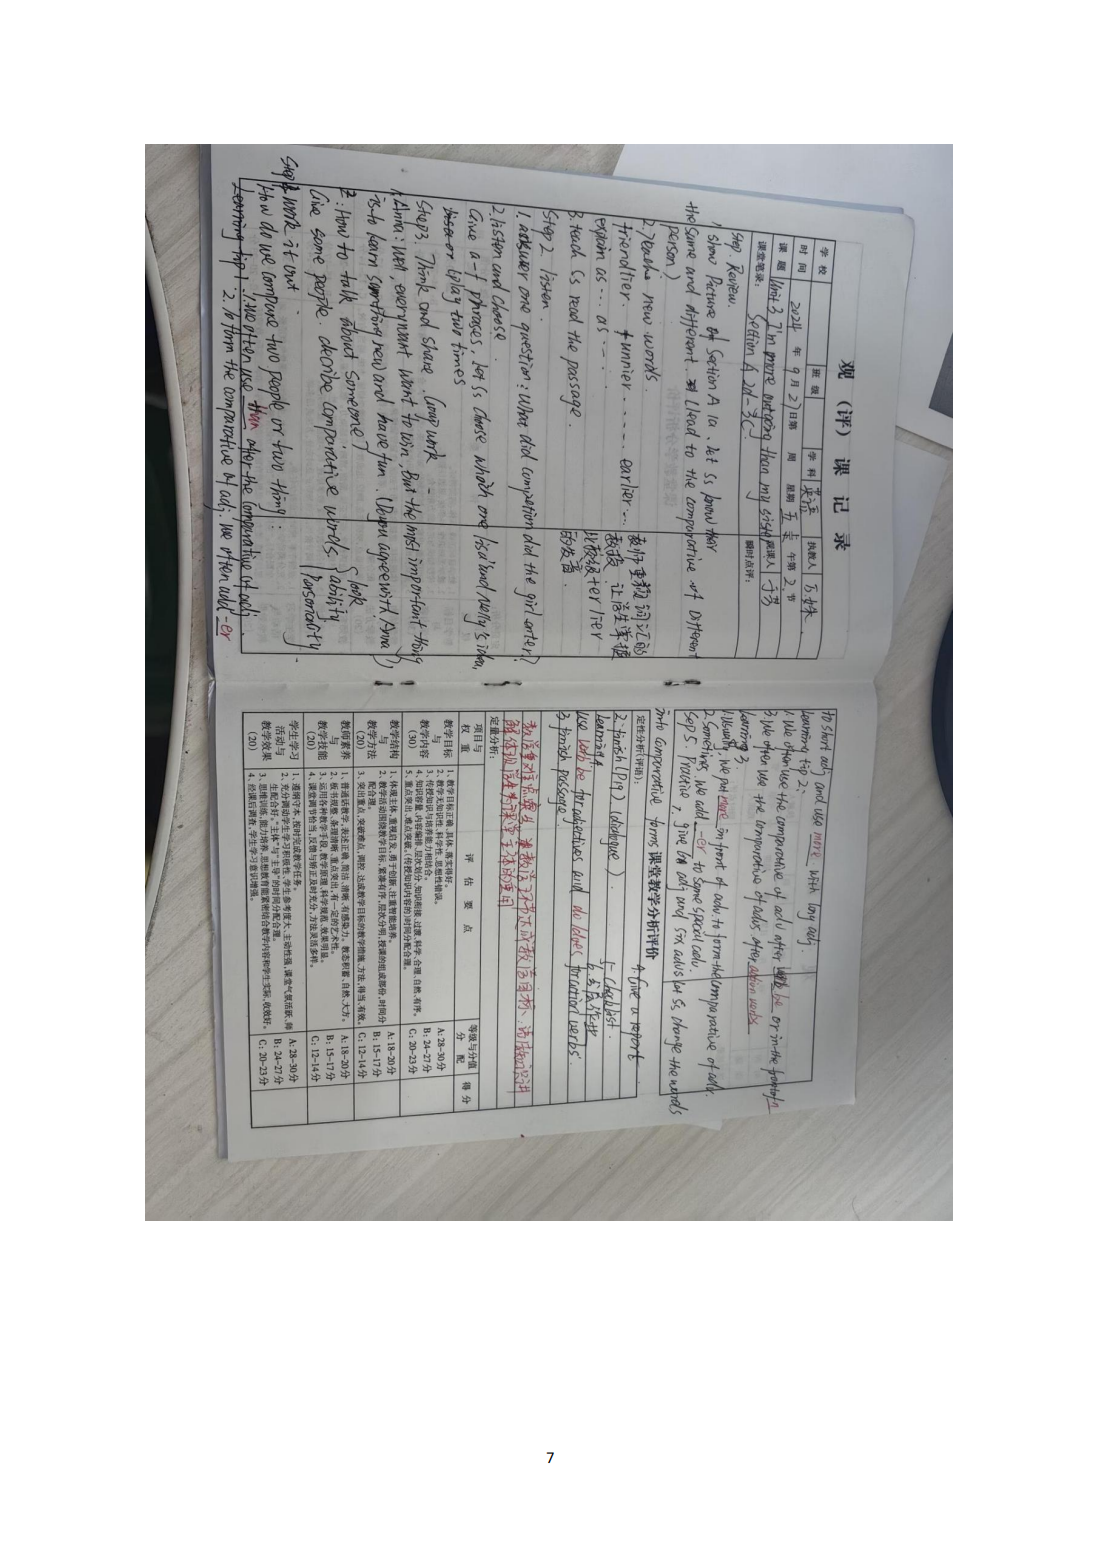 观（评）课记录
学校 班级 学科 英语 执教人
时间 2024年9月27日第 周 星期五 午第2节
课题 Unit 3 I'm more outgoing than my sister 听课人
Section A 2d-3c
课堂笔录： 瞬时点评：
Step. Review.
1. show Picture of Section A 1a. let Ss know their
the same and different. (lead to the comparative of Different
person)
2. Teach new words.
friendlier. funnier ...... earlier...
explain as... as...
3. teach Ss read the passage.
教师重视词汇的
教授，让学生掌握
比较级+er lier
的发音.
Step 2. listen.
1. answer one question: What did competion did the girl enter?
2. listen and choose.
Give a-f phrases, let Ss choose which one lisa and nelly's idea,
(play two times
Step 3. Think and share. Group work
1. Anna: Well, everyone want to win, But the most important thing
is to learn something new and have fun. (Do you agree with Anna)
2: How to talk about someone?
Give some people. decribe comparative words. look ability Personality
Step 4 work it out.
How do we compare two people or two things:
Learning tip 1. 1. We often use than after the comparative of adj.
2. To form the comparative of adj. we often add -er
to short adj and use more with long adj.
Learning tip 2:
1. We often use the comparative of adj after be or in the front of n
3. We often use the comparative of advs after action verbs
Learning 3.
1. Usually, we put more in front of adv. to form the comparative of adv.
2. Sometimes, we add -er to some special adv.
Step 5 Practise 7, give adj and six advs let Ss change the words
into comparative forms
课堂教学分析评价
定性分析(评语):
4. Give a report
2. finish (P19) (dialogue)
5- checklist.
Learning 4
6. 布置作业
use verb be for adjectives and do/does for action verbs.
3 finish passage
定量分析:
项目与权重 评估要点 等级与分值分配 得分
教学目标与教学内容（30）
1、教学目标正确、具体、落实得好。
2、教学无知识性、科学性、思想性错误。
3、传授知识与培养能力相结合。
4、知识容量、内容编排、层次划分、知识衔接、过渡,科学、合理、自然、有序。
5、重点突出,难点突破,(传授知识内容的)时间分配合理。
A: 28-30分
B: 24-27分
C: 20-23分
教学结构与教学方法（20）
1、体现主体,重视启发,勇于创新,注重智能培养。
2、教学活动围绕教学目标,紧凑有序,层次分明,授课的组成部份,时间分配合理。
3、突出重点,突破难点,调控、达成教学目标的教学措施、方法,得当、有效。
A: 18-20分
B: 15-17分
C: 12-14分
教师素养与教学技能（20）
1、普通话教学、表述正确、简洁、清晰、有感染力。教态积蓄、自然、大方。
2、板书规整、条理清晰、重点突出、有一定的艺术性。
3、运用各种教学手段、教学原理,科学规范,效果明显。
4、课堂调节恰当,反馈与矫正及时充分,方法灵活多样。
A: 18-20分
B: 15-17分
C: 12-14分
学生学习活动与教学效果（20）
1、遵纲守本,按时完成教学任务。
2、充分调动学生学习积极性、学生参考度大、主动性强,课堂气氛活跃,师生配合好。“主体”与“主导”的时间分配合理。
3、思维训练,能力培养,思想教育能紧密结合教学内容和学生实际,收效好。
4、经课后调查,学生学习意识增强。
A: 28-30分
B: 24-27分
C: 20-23分
7